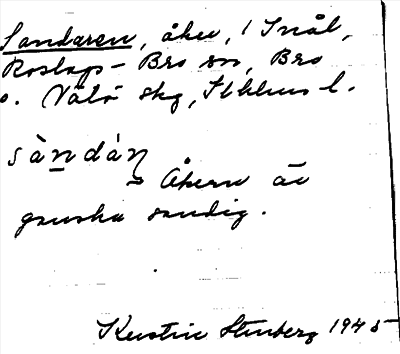 Sandaren, åker, i Snål,
Roslags-Bro sn, Bro
o. Vätö skg, Sthlms l.
sàndáṇ
Åkern är
ganska sandig.
Kerstin Stenberg 1945